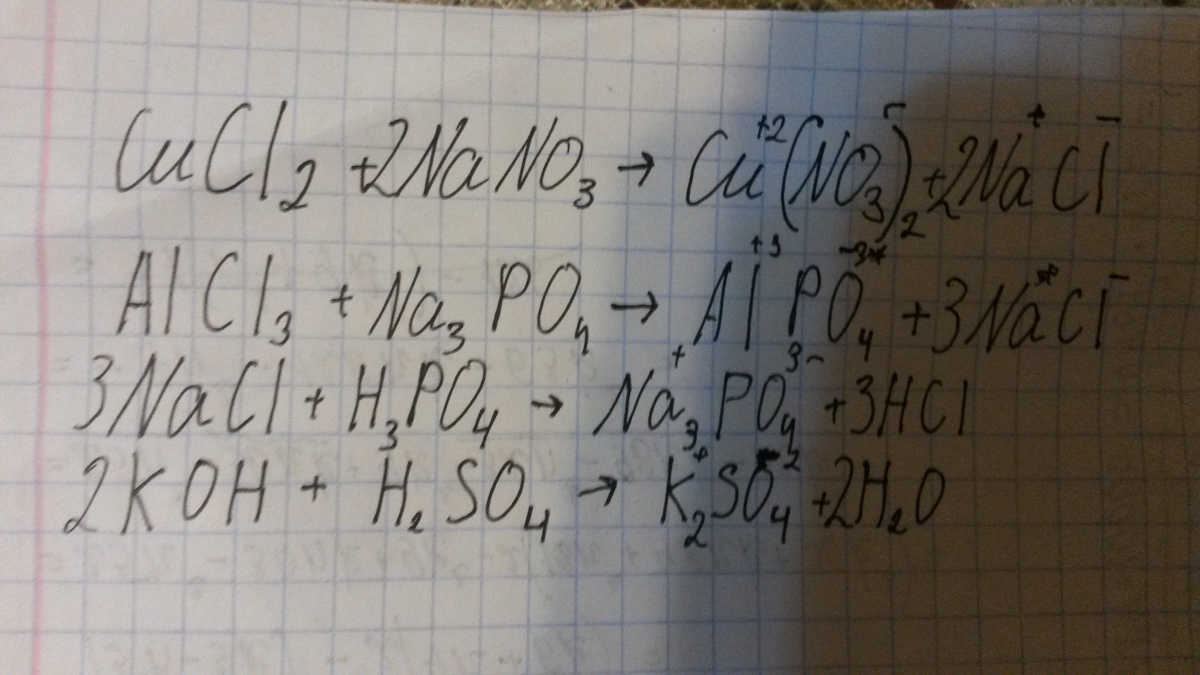 CuCl₂ + 2NaNO₃ → Cu⁺²(NO₃)₂⁻ + 2Na⁺Cl⁻
AlCl₃ + Na₃PO₄ → Al⁺³PO₄⁻³ + 3Na⁺Cl⁻
3NaCl + H₃PO₄ → Na₃⁺PO₄³⁻ + 3HCl
2KOH + H₂SO₄ → K₂⁺SO₄⁻² + 2H₂O